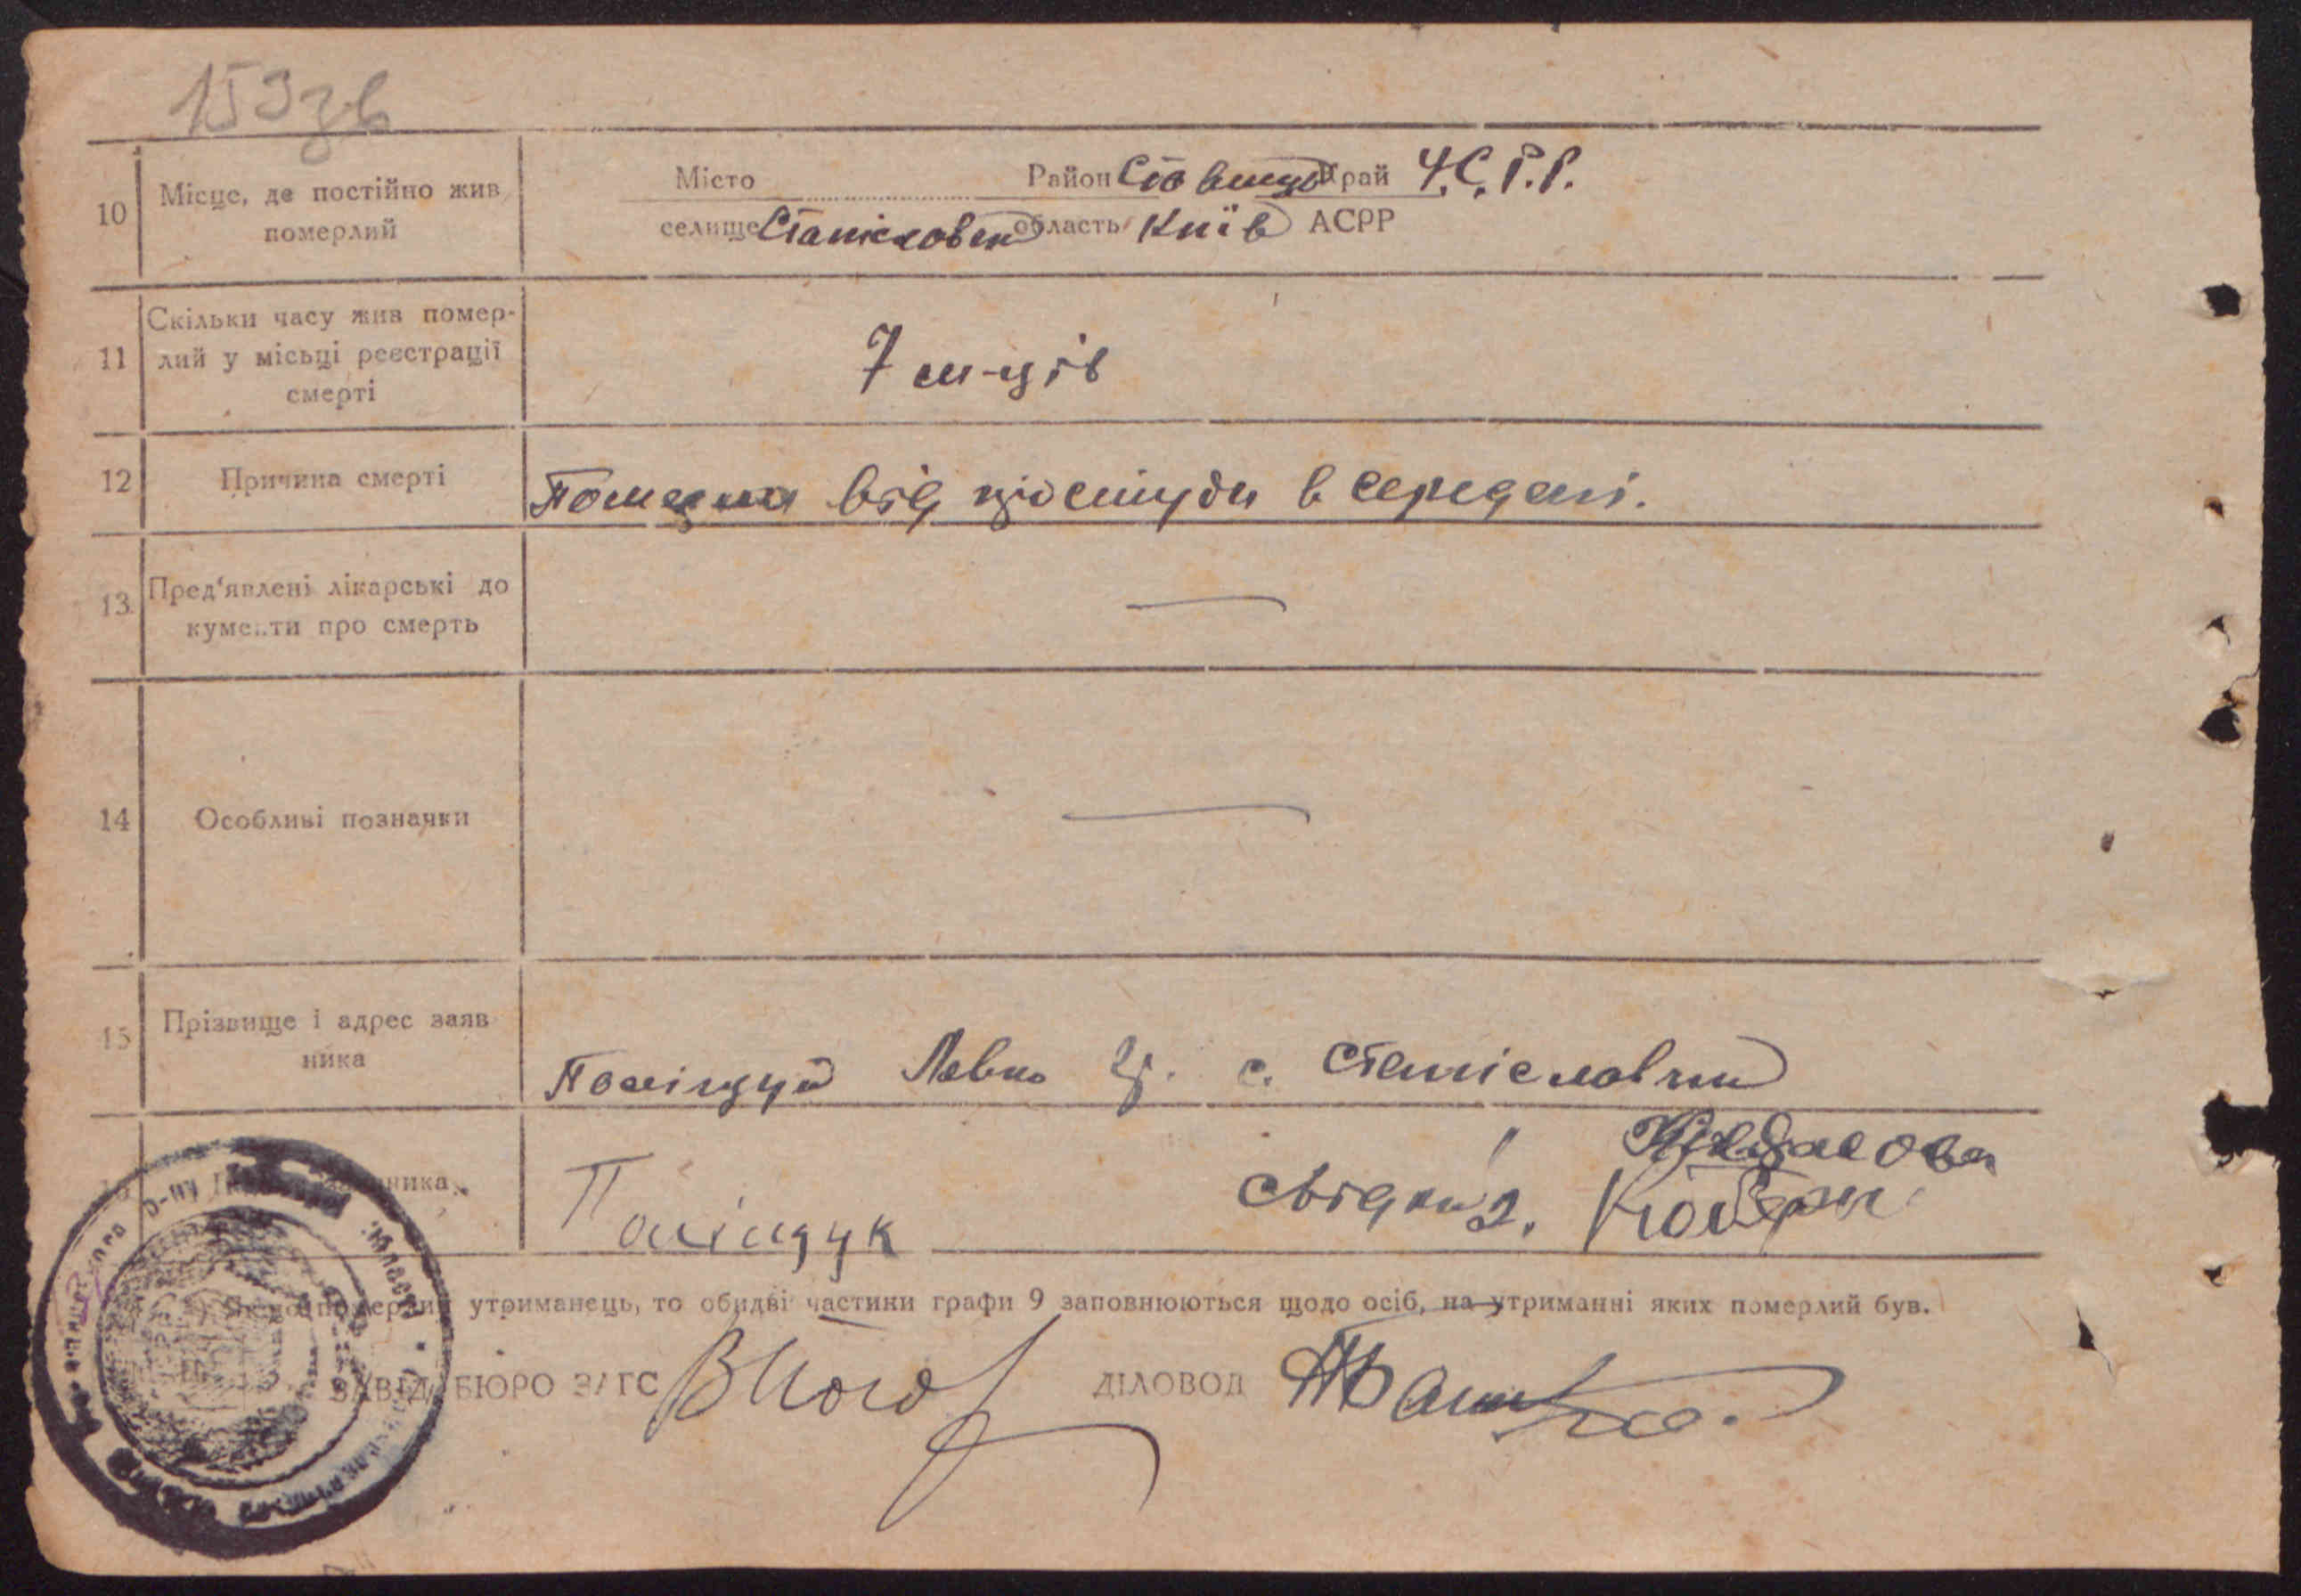 153зв
10 Місце, де постійно жив померлий
Місто Район Ставище Край У.С.Р.Р.
селище Станіславчик область Київ АСРР
11 Скільки часу жив помер-
лий у місьці реєстрації
смерті
7 м-ців
12 Причина смерті
від простуди в середені.
13 Пред'явлені лікарські до
кументи про смерть
—
14 Особливі позначки
—
15 Прізвище і адрес заяв
ника
Поліщук Левко Гр. с. Станіславчик
ника
Поліщук
свідки 2.
померлий утриманець, то обидві частини графи 9 заповнюються щодо осіб, на утриманні яких померлий був.
ЗАВІД. БЮРО ЗАГС ДІЛОВОД